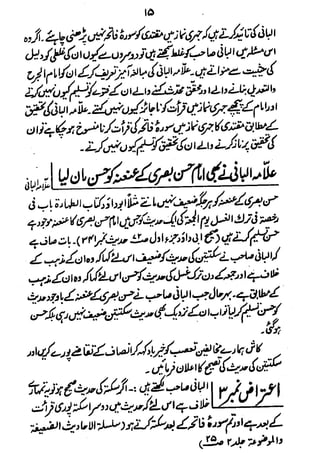 ۱۵
البانی کی تائید کرتے ہیں کہ جہری نماز میں مقتدی کو سورۂ فاتحہ نہیں پڑھنی چاہئے۔ اگر وہ
اس مسئلہ میں البانی صاحب کو غلط سمجھتے ہیں تو دوسروں سے کیوں ان کی غلطی کو دلیل
کی حیثیت سے منواتے ہیں۔ علامہ البانی کی مبالغہ آمیز تعریف کر کے ان کو امام الجرح
والتعدیل بنانے والے اور محقق محدث کہنے والے ان کے فتوے کو تسلیم کیوں نہیں کرتے
اور امام کے پیچھے جہری نماز میں قرأت کو ناجائز کیوں نہیں کہتے۔ علامہ البانی کی تحقیق
کے مطابق مقتدی کا جہری نماز میں سورۂ فاتحہ کی قرأت کرنا منسوخ ہو چکا ہے تو ان
کی تحقیق پر ناز کرنے والے ان کی تحقیق کو تسلیم کیوں نہیں کرتے۔
علامہ البانی نے بھی امام حسن بصری کے عنعنہ کو حسن مان لیا
علامہ البانی
حسن بصری کے عنعنہ کو ہر جگہ ضعیف نہیں مانتے مثلاً ابو داؤد کتاب الطہارۃ باب فی
رخصۃ فی ترک الغسل یوم الجمعۃ کی ایک حدیث کو جس میں امام حسن بصری کا عنعنہ موجود ہے
حسن تسلیم کرتے ہیں (صحیح ابی داؤد جزء اول حدیث نمبر ۳۴۱)۔ بات صاف ہے
کہ البانی صاحب نے سکتتین کی حدیث کو ضعیف اس لئے کہا کہ وہ ان کے مذہب کے
خلاف ہے اور جمعہ کے دن ترک غسل کی حدیث کو حسن اس لئے کہا کہ وہ ان کے مذہب
کے مطابق ہے۔ بہرحال جب البانی صاحب نے حسن بصری کے عنعنہ کے باوجود حدیث
کو حسن تسلیم کر لیا تو اب ان کے نزدیک بھی حدیث سکتتین ضعیف نہیں رہی بلکہ حسن
ہو گئی۔
کاش ہمارے مخالفین تعصب کو خیرباد کہہ کر انصاف کے تقاضے پورے کریں اور
سکتتین کی حدیث کے صحیح کا اعلان فرمائیں۔
اعتراض نمبر ۳ البانی صاحب لکھتے ہیں :۔ اگر سکتہ کی حدیث صحیح ہو تو یہ تمہارے
خلاف ہے اس لئے کہ حدیث میں دوسرا سکتہ پوری قرأت
کے بعد ہے اور تم سورۂ فاتحہ کے بعد سکتہ کرتے ہو (سلسلۃ الاحادیث الضعیفۃ
والموضوعۃ جلد ۲ ص ۲۵)